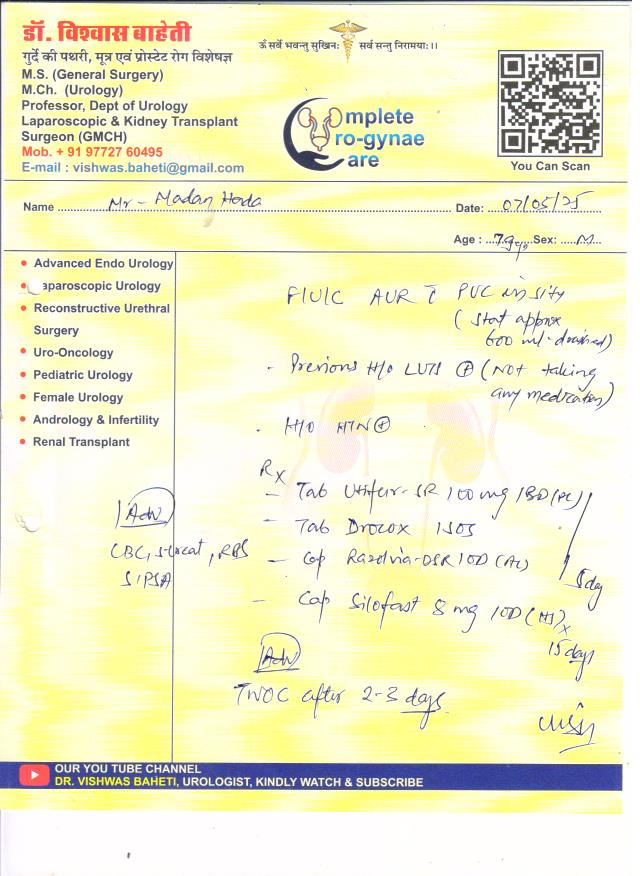 डॉ. विश्वास बाहेती
गुर्दे की पथरी, मूत्र एवं प्रोस्टेट रोग विशेषज्ञ
M.S. (General Surgery)
M.Ch. (Urology)
Professor, Dept of Urology
Laparoscopic & Kidney Transplant
Surgeon (GMCH)
Mob. + 91 97727 60495
E-mail : vishwas.baheti@gmail.com
ॐ सर्वे भवन्तु सुखिनः सर्व सन्तु निरामयाः।।
Complete
Uro-gynae
Care
You Can Scan
Name Mr - Madan Date: 07/05/25
Age : Sex: M
Advanced Endo Urology
aparoscopic Urology
Reconstructive Urethral
Surgery
Uro-Oncology
Pediatric Urology
Female Urology
Andrology & Infertility
Renal Transplant
F/U/C AUR c̄ PUC insity
(stat approx
600 ml drained)
- Previous H/o LUTS ⊕ (Not taking
any medication)
- H/o HTN ⊕
Rx
- Tab SR 100 mg 1BD (PC)
- Tab Drocox 1SOS
- Cap DSR 1OD (AC)
5 day
- Cap Silofast 8 mg 1OD (HS) x
15 days
Adv
CBC, S.creat, RBS
S.PSA
Adv
TWOC after 2-3 days
OUR YOU TUBE CHANNEL
DR. VISHWAS BAHETI, UROLOGIST, KINDLY WATCH & SUBSCRIBE